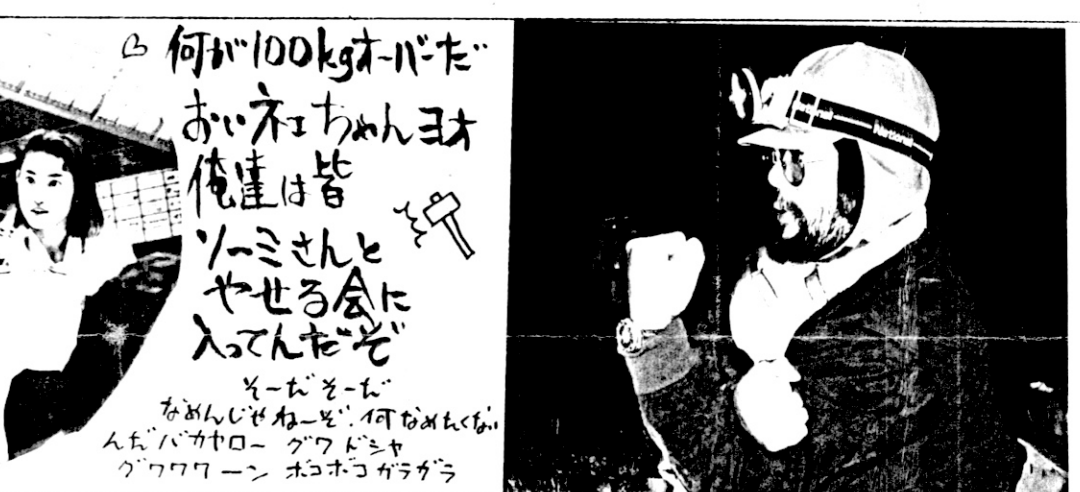 何が100kgオーバーだ
おいネエちゃんヨオ
俺達は皆
ソーミさんと
やせる会に
入ってんだぞ
そーだ そーだ
なめんじゃねーぞ.何なめたくない
んだバカヤロー グワ ドシャ
グワワワーン ボコボコガラガラ
National